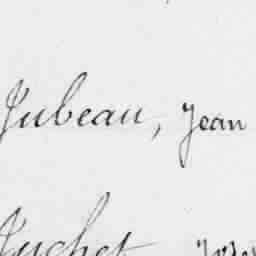 Jubeau, Jean
Juchet